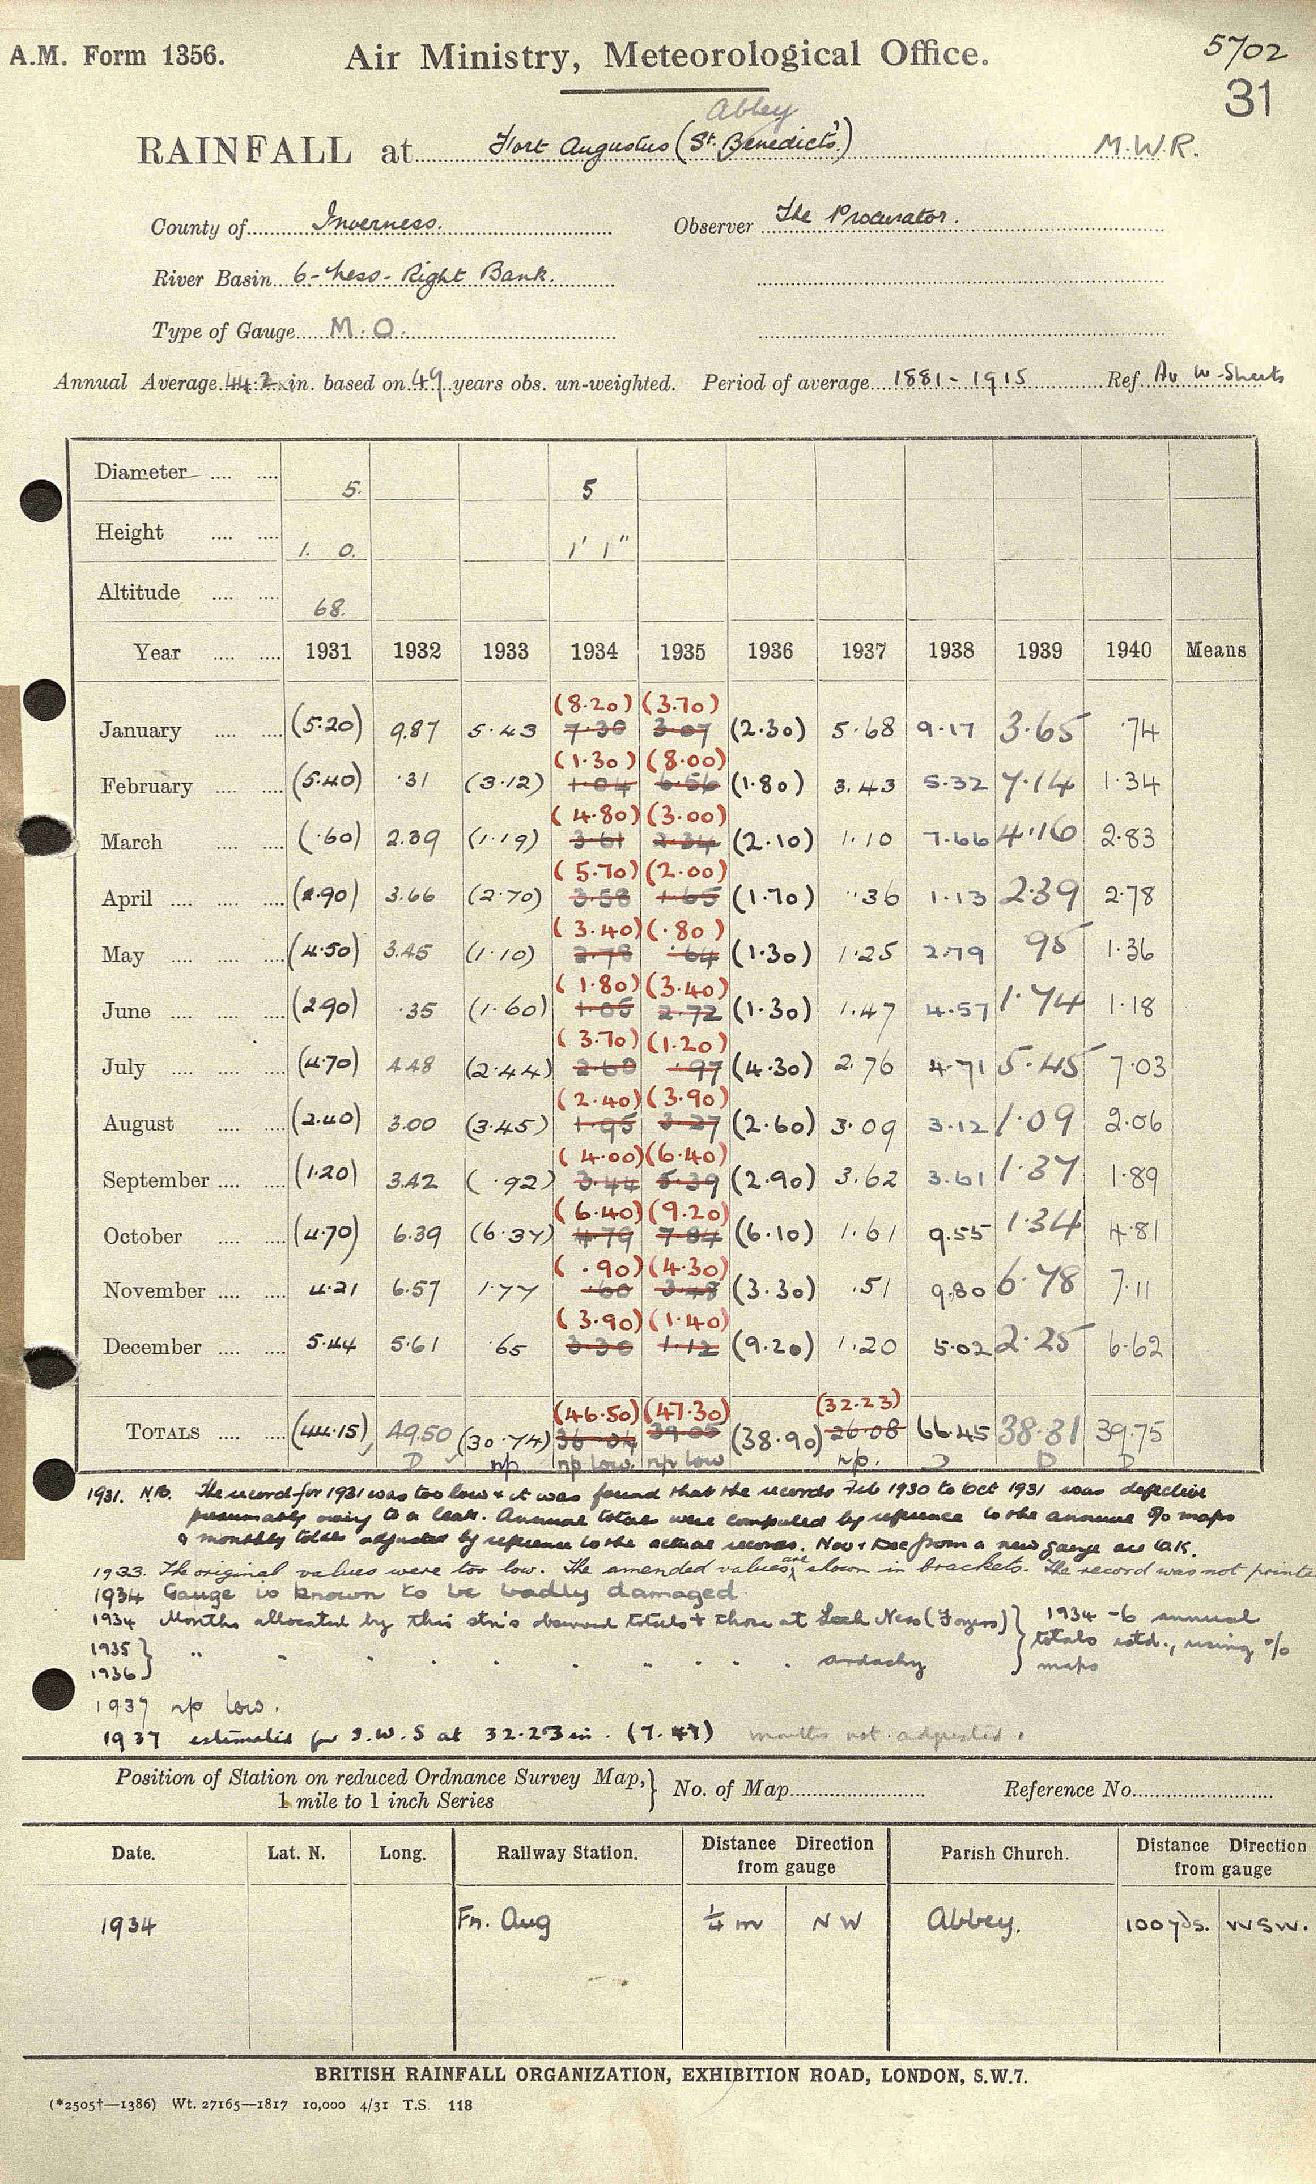 A.M. Form 1356. Air Ministry, Meteorological Office. 5702
31
Abbey
RAINFALL at Fort Augustus (St. Benedict's) M.W.R.
County of Inverness. Observer The Procurator.
River Basin 6-Ness-Right Bank.
Type of Gauge M.O.
Annual Average 44.2 in. based on 49 years obs. un-weighted. Period of average 1881-1915 Ref. Av W-Sheets
Diameter 5. 5
Height 1. 0. 1' 1"
Altitude 68.
Year 1931 1932 1933 1934 1935 1936 1937 1938 1939 1940 Means
(8.20) (3.70)
January (5.20) 9.87 5.43 7.30 3.07 (2.30) 5.68 9.17 3.65 .74
(1.30) (8.00)
February (5.40) .31 (3.12) 1.04 6.56 (1.80) 3.43 5.32 7.14 1.34
(4.80) (3.00)
March (.60) 2.39 (1.19) 3.61 2.34 (2.10) 1.10 7.66 4.16 2.83
(5.70) (2.00)
April (2.90) 3.66 (2.70) 3.58 1.65 (1.70) .36 1.13 2.39 2.78
(3.40) (.80)
May (4.50) 3.45 (1.10) 2.78 .64 (1.30) 1.25 2.79 .95 1.36
(1.80) (3.40)
June (2.90) .35 (1.60) 1.05 2.72 (1.30) 1.47 4.57 1.74 1.18
(3.70) (1.20)
July (4.70) 4.48 (2.44) 2.60 .97 (4.30) 2.76 4.71 5.45 7.03
(2.40) (3.90)
August (2.40) 3.00 (3.45) 1.95 3.27 (2.60) 3.09 3.12 1.09 2.06
(4.00) (6.40)
September (1.20) 3.42 (.92) 3.44 5.39 (2.90) 3.62 3.61 1.37 1.89
(6.40) (9.20)
October (4.70) 6.39 (6.37) 4.79 7.84 (6.10) 1.61 9.55 1.34 4.81
(.90) (4.30)
November 4.21 6.57 1.77 .60 3.48 (3.30) .51 9.80 6.78 7.11
(3.90) (1.40)
December 5.44 5.61 .65 3.30 1.12 (9.20) 1.20 5.02 2.25 6.62
(46.50) (47.30) (32.23)
TOTALS (44.15) 49.50 (30.74) 36.04 39.05 (38.90) 26.08 66.45 38.31 39.75
D np np low. np low np. D D D
1931. N.B. The record for 1931 was too low & it was found that the records Feb 1930 to Oct 1931 was defective
presumably owing to a leak. Annual totals were computed by reference to the annual % maps
& monthly totals adjusted by reference to the actual records. Nov & Dec from a new gauge are O.K.
1933. The original values were too low. The amended values are shown in brackets. The record was not printe
1934 Gauge is known to be badly damaged.
1934 Months allocated by this stn's observed totals & those at Loch Ness (Foyers) } 1934-6 annual
1935 } " " " " " " " " " ardachy totals estd., using %
1936 } maps
1937 np low.
1937 estimated for I.W.S at 32.23 in. (7.47) months not adjusted.
Position of Station on reduced Ordnance Survey Map, } No. of Map Reference No.
1 mile to 1 inch Series
Date. Lat. N. Long. Railway Station. Distance Direction from gauge Parish Church. Distance Direction from gauge
1934 Ft. Aug 1/4 m NW Abbey. 100 yds. WSW.
BRITISH RAINFALL ORGANIZATION, EXHIBITION ROAD, LONDON, S.W.7.
(*2505†—1386) Wt. 27165—1817 10,000 4/31 T.S. 118